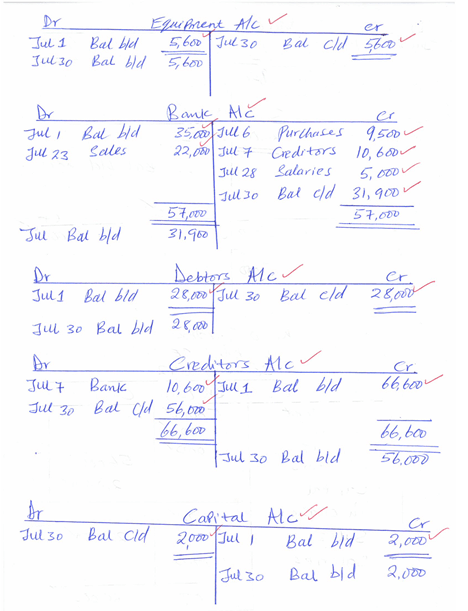 Dr Equipment A/c cr
Jul 1 Bal b/d 5,600 Jul 30 Bal c/d 5,600
Jul 30 Bal b/d 5,600
Dr Bank A/c cr
Jul 1 Bal b/d 35,000 Jul 6 Purchases 9,500
Jul 23 Sales 22,000 Jul 7 Creditors 10,600
Jul 28 Salaries 5,000
Jul 30 Bal c/d 31,900
57,000 57,000
Jul Bal b/d 31,900
Dr Debtors A/c Cr
Jul 1 Bal b/d 28,000 Jul 30 Bal c/d 28,000
Jul 30 Bal b/d 28,000
Dr Creditors A/c Cr
Jul 7 Bank 10,600 Jul 1 Bal b/d 66,600
Jul 30 Bal c/d 56,000
66,600 66,600
Jul 30 Bal b/d 56,000
Dr Capital A/c Cr
Jul 30 Bal c/d 2,000 Jul 1 Bal b/d 2,000
Jul 30 Bal b/d 2,000